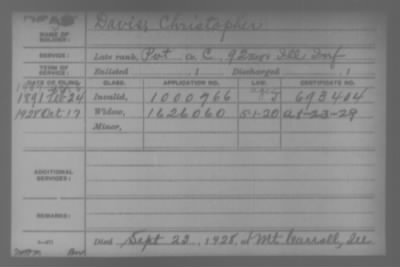 Davis, Christopher
NAME OF SOLDIER:
SERVICE: Late rank, Pvt Co. C, 92 Regt Ill Inf
TERM OF SERVICE: Enlisted , 1 Discharged , 1
DATE OF FILING. CLASS. APPLICATION NO. LAW. CERTIFICATE NO.
1891 Feb 24 Invalid, 1000966 J 693404
1928 Oct 17 Widow, 1626060 5-1-20 A 8-23-29
Minor,
ADDITIONAL SERVICES:
REMARKS:
Died Sept 23, 1928, at Mt Carroll, Ill